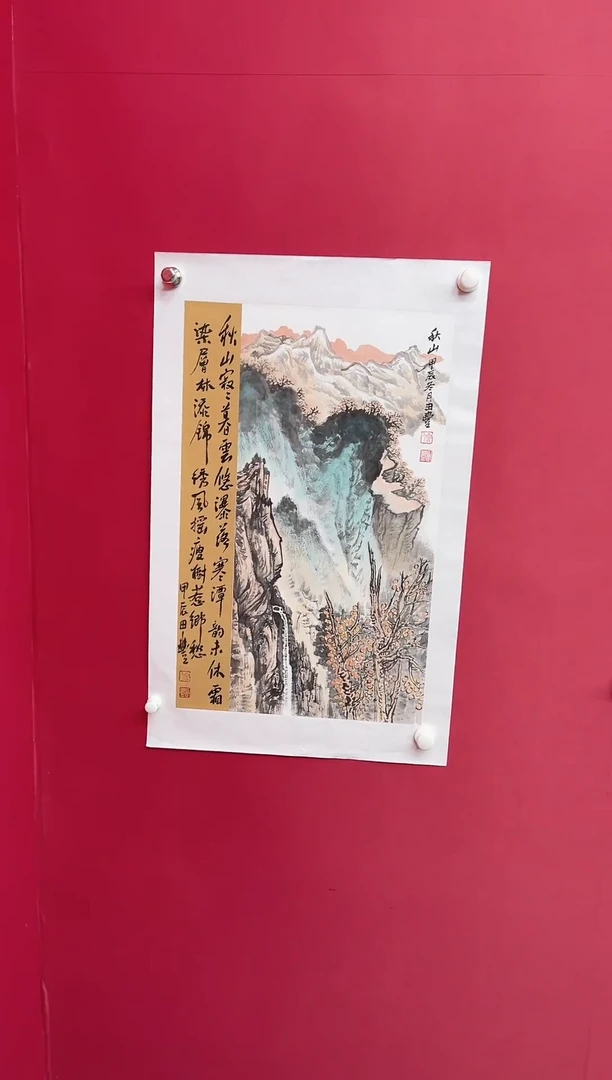 秋山
甲辰冬月田豐
秋山寂〻暮雲悠瀑落寒潭韵未休霜
染層林流錦绣風摇瘦樹惹鄉愁
甲辰田豐